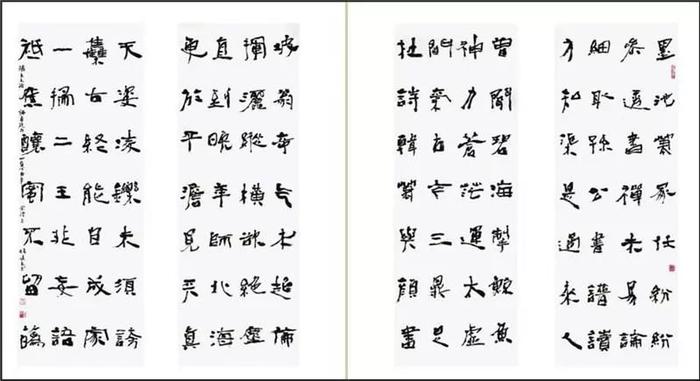 墨池筆冢任紛紛
參透書禪未易論
細取孫公書譜讀
方知渠是過來人
曾聞碧海掣鯨魚
神力蒼茫運太虛
間氣古今三鼎足
杜詩韓筆與顏書
坡翁奇氣本超倫
揮灑縱橫欲絕塵
直到晚年師北海
更於平澹見天真
天姿凌轢未須誇
集古終能自成家
一掃二王非妄語
祗應釀蜜不留